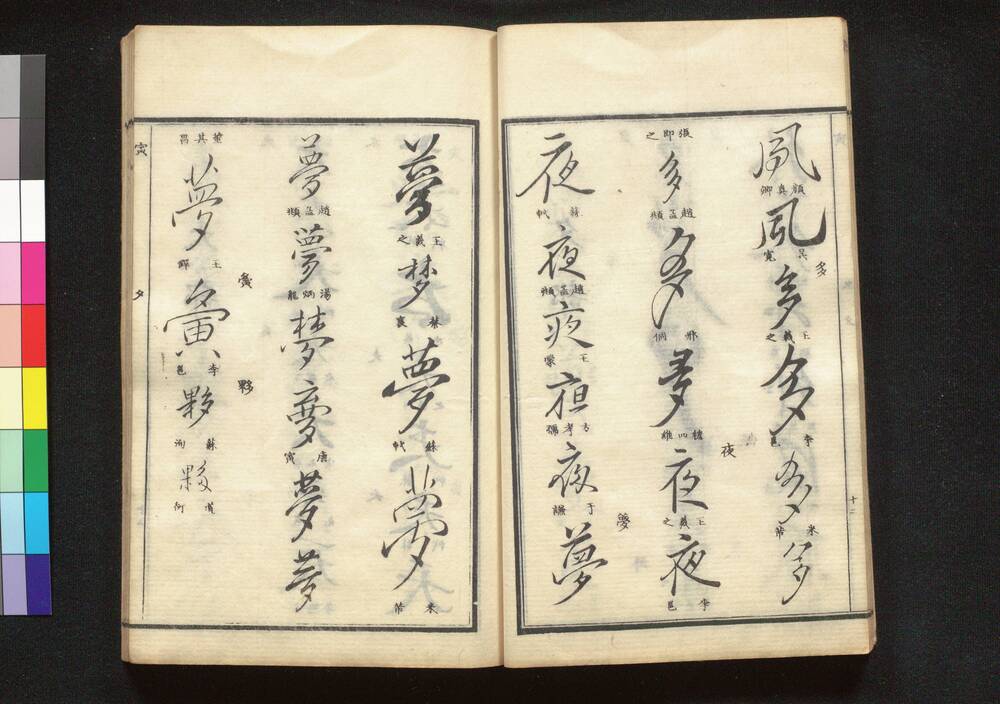 夙 顔真卿
夙 吳寬
多
多 王羲之
多 李邕
多 米芾
多
張即之
多 趙孟頫
多 鄧俩
多
夜
夜 王羲之
夜 李邕
夜 蘇軾
夜 趙孟頫
夜 王
夜 方孝孺
夜 于謙
夢
夢
夢 王羲之
梦 蔡襄
夢 蘇軾
夢 米芾
夢 趙孟頫
夢 湯炳龍
梦
夢 唐寅
夢
夢
董其昌
夢 王鐸
夤
夤 李邕
夥
夥 蘇洵
夥
寅
夕
十二